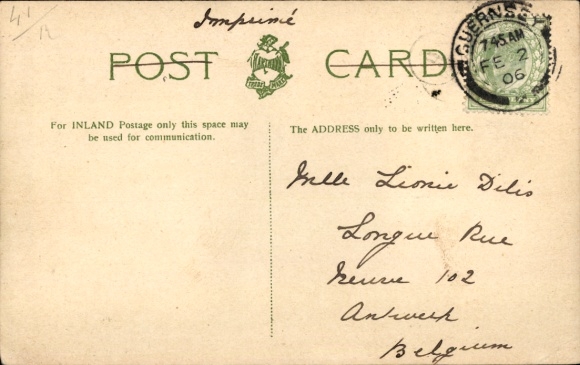 41
12
Imprimé
POST CARD
GUERNSEY
7 45 AM
FE 2
06
For INLAND Postage only this space may
be used for communication.
The ADDRESS only to be written here.
Mlle Lionie Dilis
Longue Rue
Neuve 102
Antwerk
Belgium